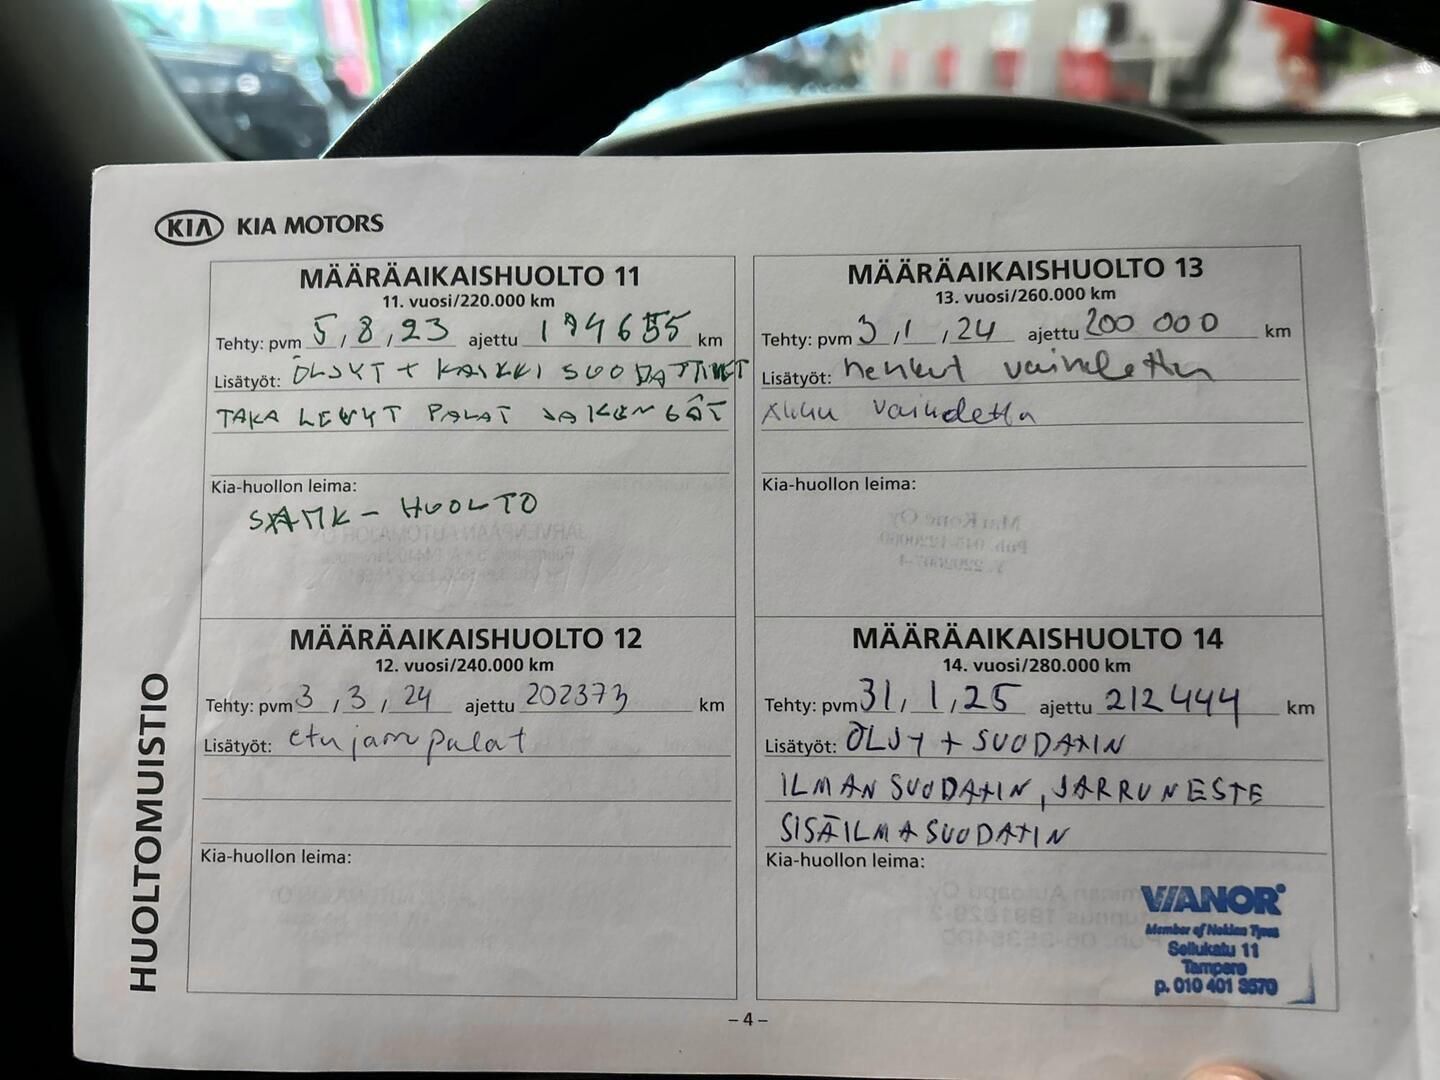 KIA KIA MOTORS
HUOLTOMUISTIO
MÄÄRÄAIKAISHUOLTO 11
11. vuosi/220.000 km
Tehty: pvm 5,8,23 ajettu 194655 km
Lisätyöt: ÖLJYT + KAIKKI SUODATTIMET
TAKA LEVYT PALAT JA KENGÄT
Kia-huollon leima:
SAMK - HUOLTO
MÄÄRÄAIKAISHUOLTO 12
12. vuosi/240.000 km
Tehty: pvm 3,3,24 ajettu 202373 km
Lisätyöt: etujarrupalat
Kia-huollon leima:
MÄÄRÄAIKAISHUOLTO 13
13. vuosi/260.000 km
Tehty: pvm 3,1,24 ajettu 200 000 km
Lisätyöt: vaihdettu
Akku vaihdettu
Kia-huollon leima:
MÄÄRÄAIKAISHUOLTO 14
14. vuosi/280.000 km
Tehty: pvm 31,1,25 ajettu 212444 km
Lisätyöt: ÖLJY + SUODATIN
ILMANSUODATIN, JARRUNESTE
SISÄILMASUODATIN
Kia-huollon leima:
VIANOR
Member of Nokian Tyres
Sellukatu 11
Tampere
p. 010 401 3570
– 4 –